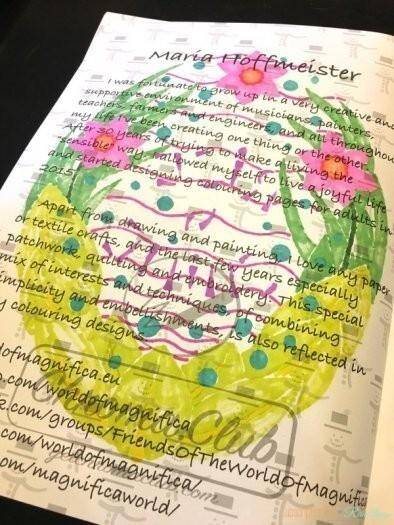 Maria Hoffmeister
I was fortunate to grow up in a very creative and
supportive environment of musicians, painters,
teachers, farmers and engineers, and all throughout
my life I've been creating one thing or the other.
After 30 years of trying to make a living the
"sensible" way, I allowed myself to live a joyful life
and started designing colouring pages for adults in
2015.
Apart from drawing and painting, I love any paper
or textile crafts, and the last few years especially
patchwork, quilting and embroidery. This special
mix of interests and techniques, of combining
simplicity and embellishments, is also reflected in
y colouring designs.
dofmagnifica.eu
.com/worldofmagnifica
k.com/groups/FriendsOfTheWorldOfMagnifica
.com/worldofmagnifica/
com/magnificaworld/
Club